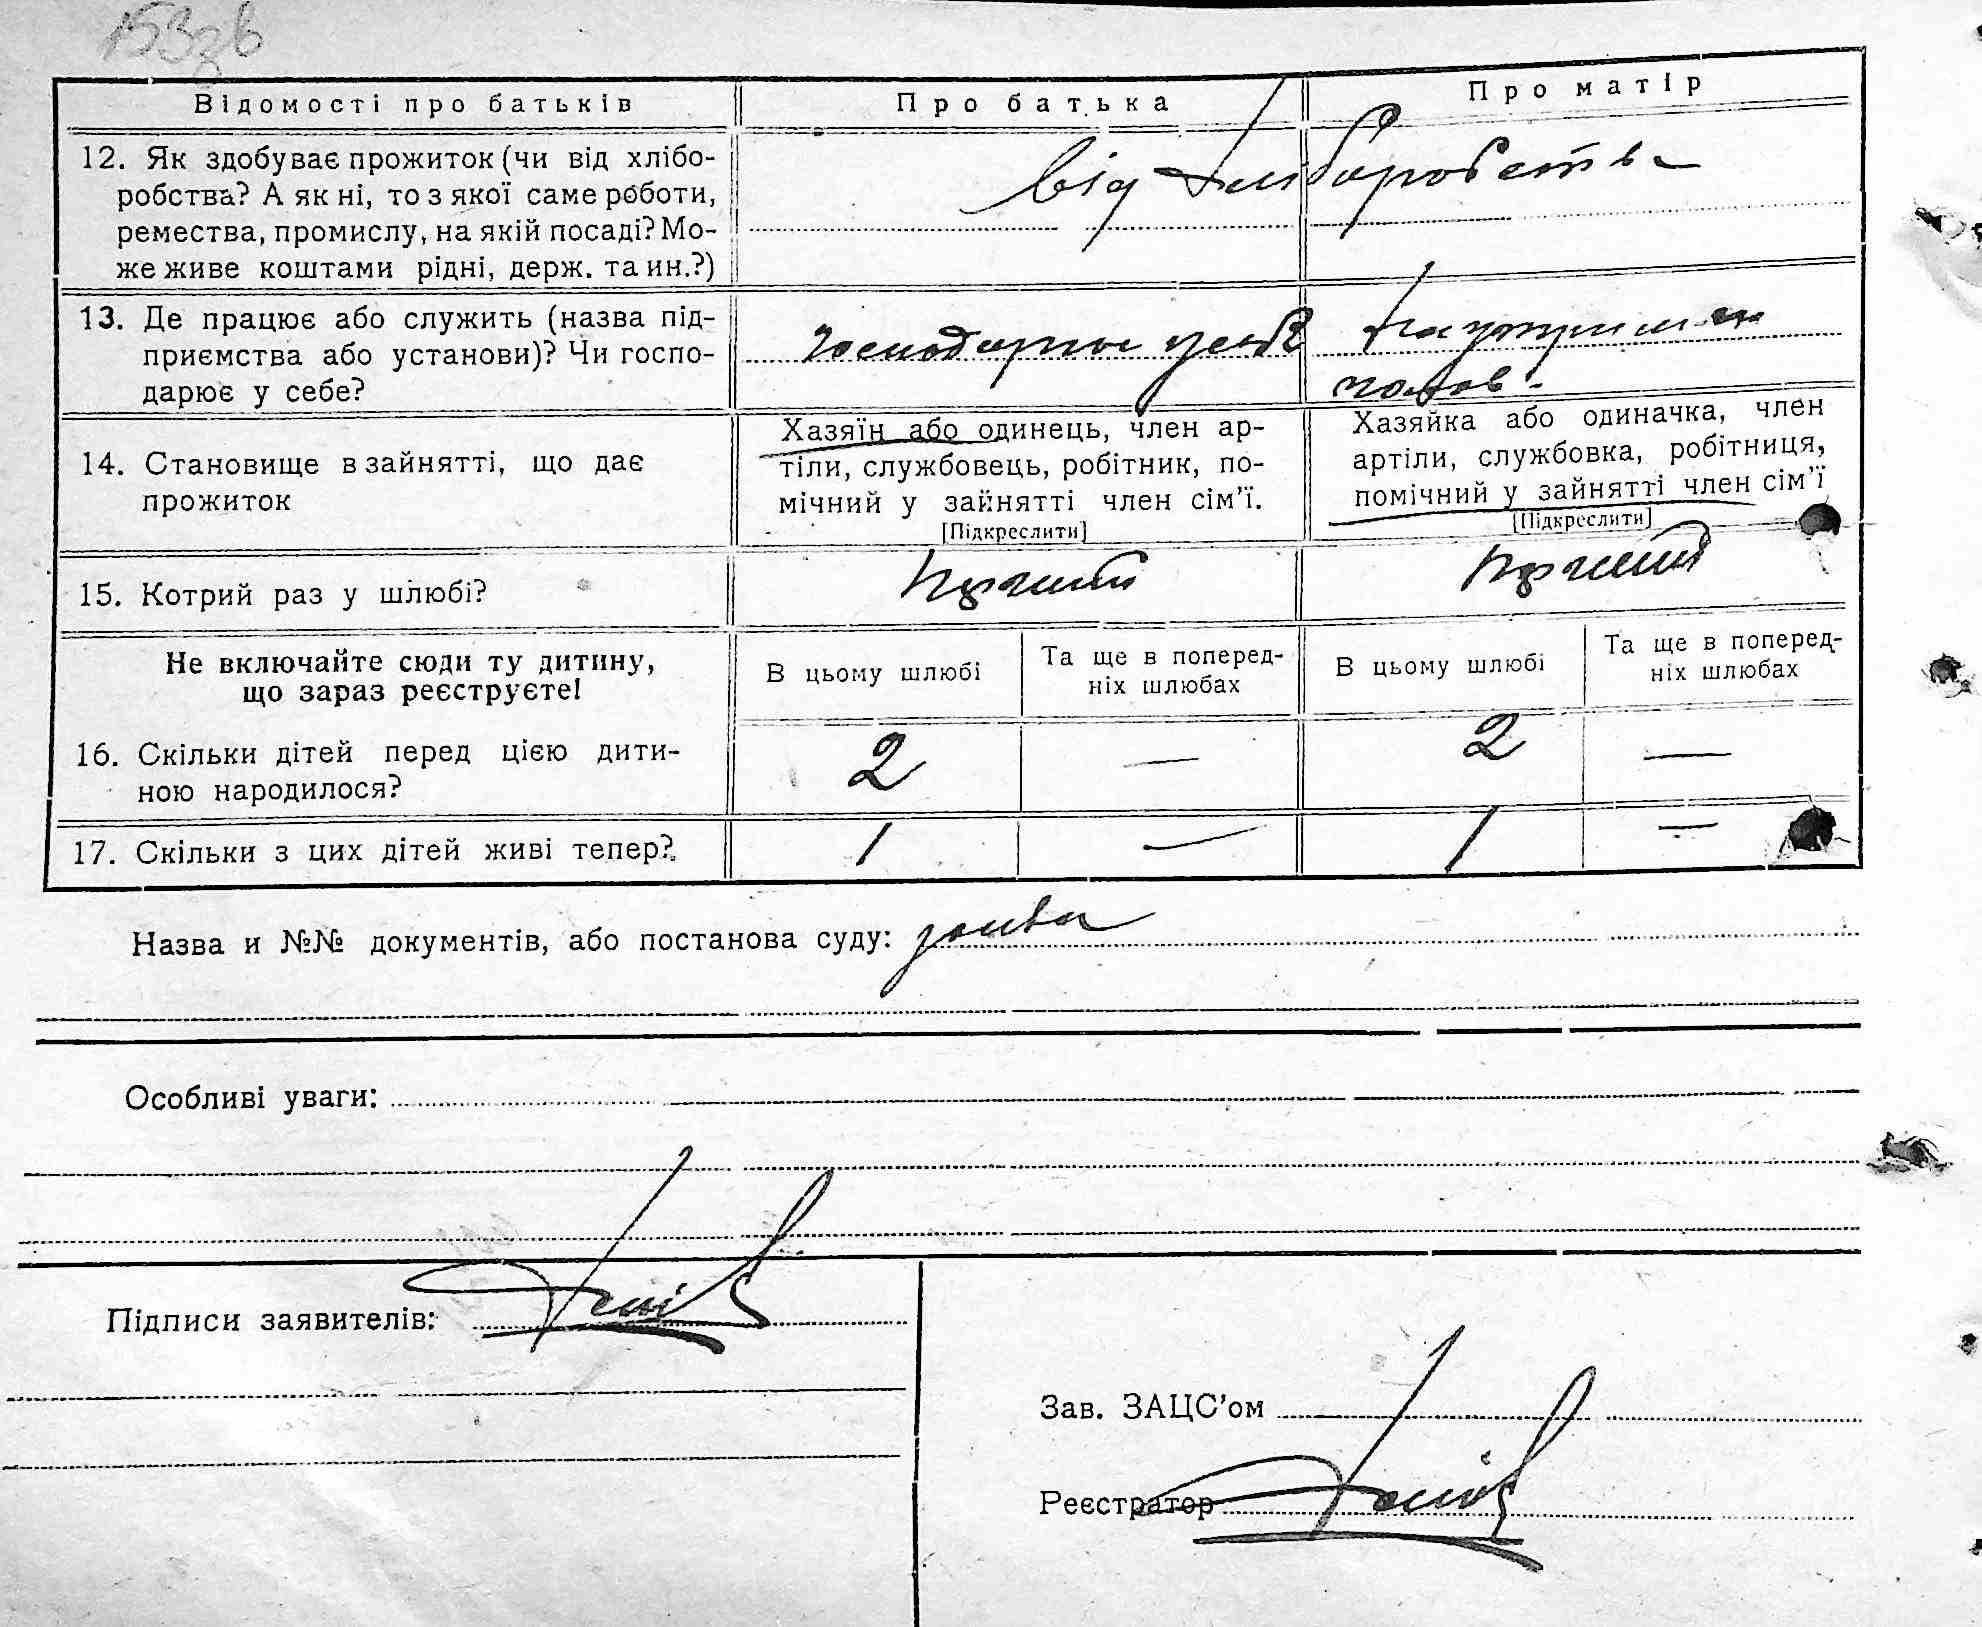 153зв
Відомості про батьків
Про батька
Про матір
12. Як здобуває прожиток (чи від хлібо-
робства? А як ні, то з якої саме роботи,
ремества, промислу, на якій посаді? Мо-
же живе коштами рідні, держ. та ин.?)
від хліборобства
13. Де працює або служить (назва під-
приємства або установи)? Чи госпо-
дарює у себе?
господарює у себе
На утриман
чолов.
14. Становище в зайнятті, що дає
прожиток
Хазяїн або одинець, член ар-
тіли, службовець, робітник, по-
мічний у зайнятті член сім'ї.
[Підкреслити]
Хазяйка або одиначка, член
артіли, службовка, робітниця,
помічний у зайнятті член сім'ї
[Підкреслити]
15. Котрий раз у шлюбі?
Перший
Перший
Не включайте сюди ту дитину,
що зараз реєструєте!
В цьому шлюбі
Та ще в поперед-
ніх шлюбах
В цьому шлюбі
Та ще в поперед-
ніх шлюбах
16. Скільки дітей перед цією дити-
ною народилося?
2
—
2
—
17. Скільки з цих дітей живі тепер?
1
—
1
—
Назва и №№ документів, або постанова суду: заява
Особливі уваги:
Підписи заявителів:
Зав. ЗАЦС'ом
Реєстратор